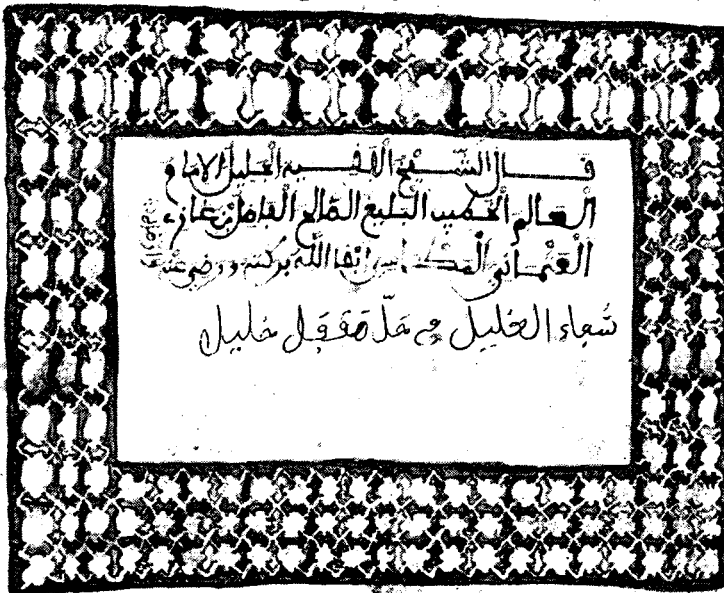 قال الشيخ الفقيه الجليل الامام
العالم الخطيب البليغ الصالح الفاضل بن غازي
العثماني المكناسي ابقا الله بركته ورضي عنه
شفاء الغليل في حل مقفل خليل